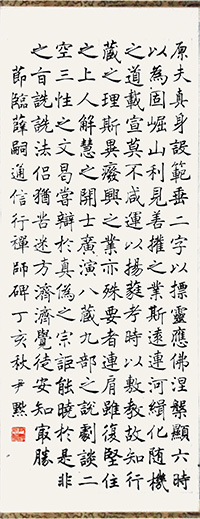 原夫真身設範垂二字以摽靈應佛涅槃顯六時
以為固崛山利見善權之業斯遠連河緝化隨機
之道載宣莫不咸運以揚蕤考時以敷教故知行
藏之理斯異廢興之業亦殊要者連肩雖復堅住
之上人解慧之開士廣演八藏九部之說劇談二
空三性之文曷嘗辯於真偽之宗詎能曉於是非
之旨詵詵法侶猶苦迷方濟濟覺徒安知冣勝
節臨薛嗣通信行禪師碑丁亥秋尹熙